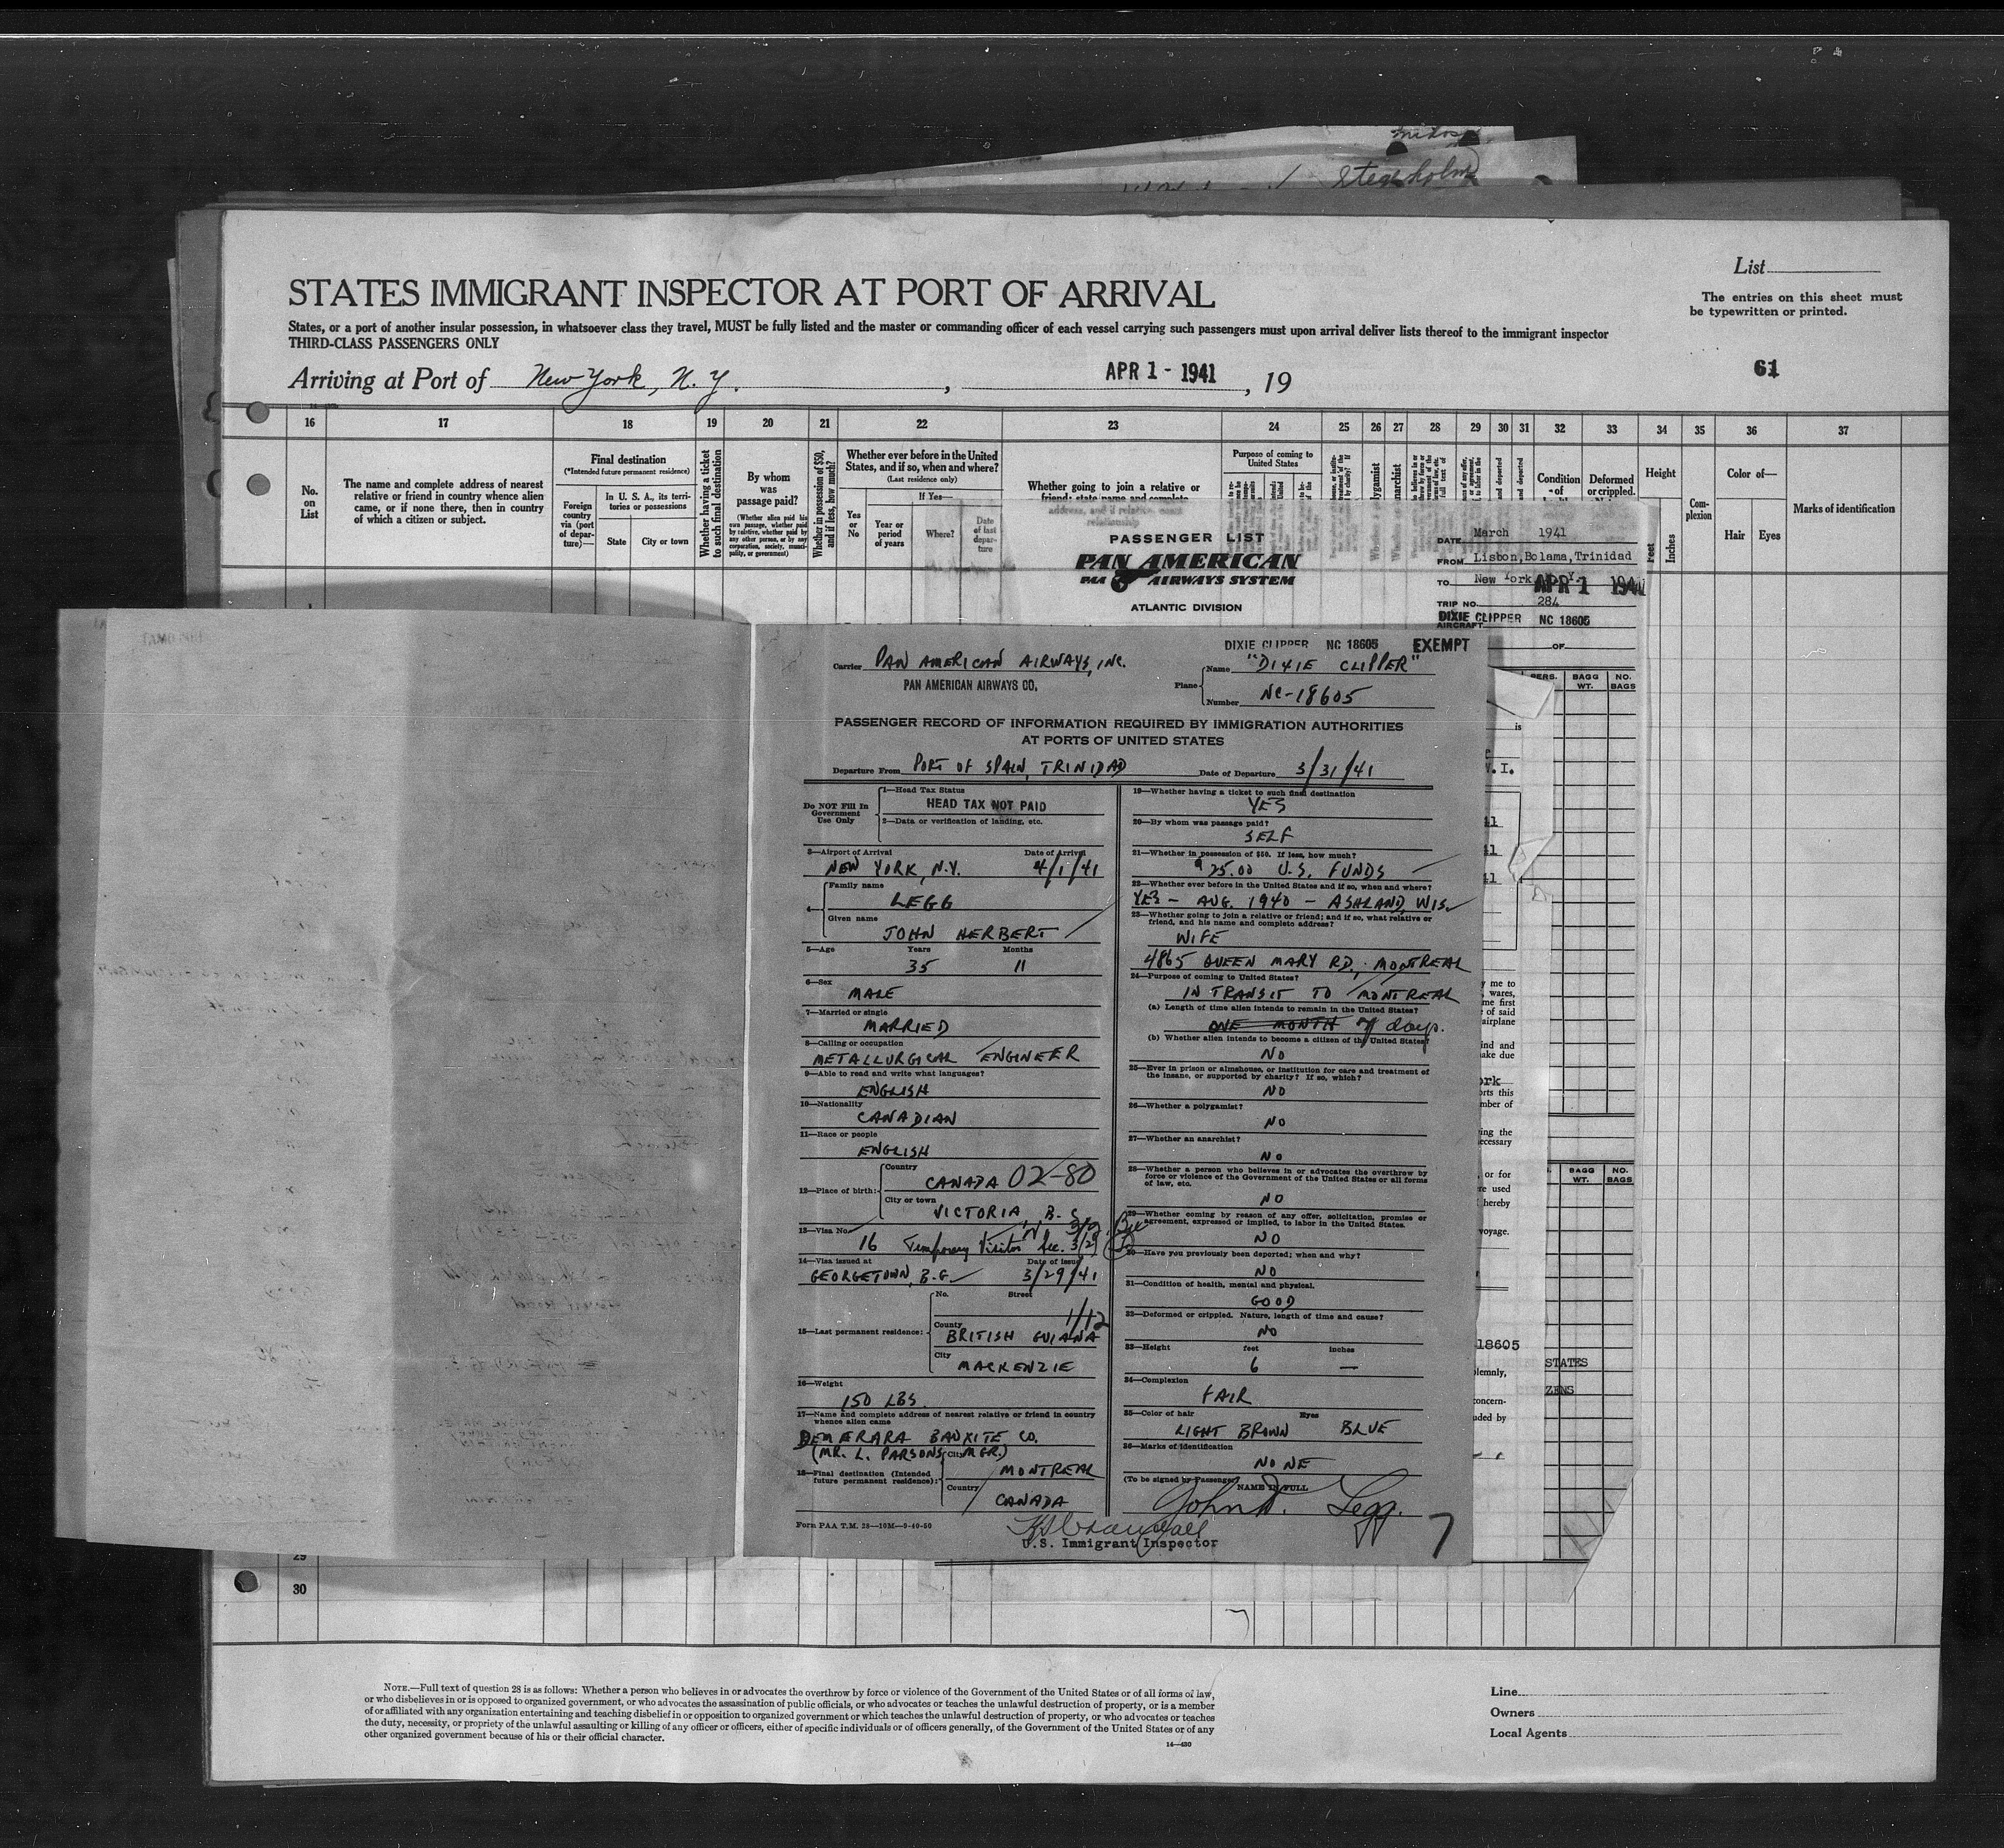 Stockholm
List
STATES IMMIGRANT INSPECTOR AT PORT OF ARRIVAL
The entries on this sheet must
be typewritten or printed.
States, or a port of another insular possession, in whatsoever class they travel, MUST be fully listed and the master or commanding officer of each vessel carrying such passengers must upon arrival deliver lists thereof to the immigrant inspector
THIRD-CLASS PASSENGERS ONLY
61
Arriving at Port of New York, N. Y. , APR 1 - 1941 , 19
16 17 18 19 20 21 22 23 24 25 26 27 28 29 30 31 32 33 34 35 36 37
No.
on
List
The name and complete address of nearest
relative or friend in country whence alien
came, or if none there, then in country
of which a citizen or subject.
Final destination
(*Intended future permanent residence)
Foreign
country
via (port
of depar-
ture)—
In U. S. A., its terri-
tories or possessions
State City or town
Whether having a ticket
to such final destination
By whom
was
passage paid?
(Whether alien paid his
own passage, whether paid
by relative, whether paid by
any other person, or by any
corporation, society, munici-
pality, or government)
Whether in possession of $50,
and if less, how much?
Whether ever before in the United
States, and if so, when and where?
(Last residence only)
Yes
or
No
If Yes—
Year or
period
of years
Where?
Date
of last
depar-
ture
Whether going to join a relative or
friend; state name and complete
address, and if relative, exact
relationship
Purpose of coming to
United States
Condition
of
Deformed
or crippled.
Height
Feet
Inches
Com-
plexion
Color of—
Hair Eyes
Marks of identification
PASSENGER LIST
PAN AMERICAN
PAA AIRWAYS SYSTEM
ATLANTIC DIVISION
DATE March 1941
FROM Lisbon,Bolama,Trinidad
TO New York N.Y. APR 1 1941
TRIP NO. 284
DIXIE CLIPPER NC 18605
AIRCRAFT
OF
PERS. BAGG WT. NO. BAGS
DIXIE CLIPPER NC 18605 EXEMPT
Carrier PAN AMERICAN AIRWAYS, INC.
PAN AMERICAN AIRWAYS CO.
Plane Name "DIXIE CLIPPER"
Number NC-18605
PASSENGER RECORD OF INFORMATION REQUIRED BY IMMIGRATION AUTHORITIES
AT PORTS OF UNITED STATES
Departure From PORT OF SPAIN, TRINIDAD Date of Departure 3/31/41
Do NOT Fill In
Government
Use Only
1—Head Tax Status
HEAD TAX NOT PAID
2—Data or verification of landing, etc.
3—Airport of Arrival Date of Arrival
NEW YORK, N.Y. 4/1/41
4— Family name
LEGG
Given name
JOHN HERBERT
5—Age Years Months
35 11
6—Sex
MALE
7—Married or single
MARRIED
8—Calling or occupation
METALLURGICAL ENGINEER
9—Able to read and write what languages?
ENGLISH
10—Nationality
CANADIAN
11—Race or people
ENGLISH
12—Place of birth: Country
CANADA 02-80
City or town
VICTORIA B.C.
13—Visa No.
16 Temporary Visitor Sec. 3(2)
14—Visa issued at Date of issue
GEORGETOWN, B.G. 3/29/41
15—Last permanent residence:
No. Street
1/12
County
BRITISH GUIANA
City
MACKENZIE
16—Weight
150 LBS.
17—Name and complete address of nearest relative or friend in country
whence alien came
DEMERARA BAUXITE CO.
(MR. L. PARSONS, MGR.)
18—Final destination (Intended
future permanent residence):
City
MONTREAL
Country
CANADA
Form PAA T.M. 28—10M—9-40-50
19—Whether having a ticket to such final destination
YES
20—By whom was passage paid?
SELF
21—Whether in possession of $50. If less, how much?
$25.00 U.S. FUNDS
22—Whether ever before in the United States and if so, when and where?
YES - AUG. 1940 - ASHLAND, WIS.
23—Whether going to join a relative or friend; and if so, what relative or
friend, and his name and complete address?
WIFE
4865 QUEEN MARY RD., MONTREAL
24—Purpose of coming to United States?
IN TRANSIT TO MONTREAL
(a) Length of time alien intends to remain in the United States?
ONE MONTH 7 days.
(b) Whether alien intends to become a citizen of the United States?
NO
25—Ever in prison or almshouse, or institution for care and treatment of
the insane, or supported by charity? If so, which?
NO
26—Whether a polygamist?
NO
27—Whether an anarchist?
NO
28—Whether a person who believes in or advocates the overthrow by
force or violence of the Government of the United States or all forms
of law, etc.
NO
29—Whether coming by reason of any offer, solicitation, promise or
agreement, expressed or implied, to labor in the United States.
NO
30—Have you previously been deported; when and why?
NO
31—Condition of health, mental and physical.
GOOD
32—Deformed or crippled. Nature, length of time and cause?
NO
33—Height feet inches
6 —
34—Complexion
FAIR
35—Color of hair Eyes
LIGHT BROWN BLUE
36—Marks of identification
NONE
(To be signed by Passenger)
NAME IN FULL
John H. Legg.
U.S. Immigrant Inspector
7
BAGG WT. NO. BAGS
18605
STATES
29
30
NOTE.—Full text of question 28 is as follows: Whether a person who believes in or advocates the overthrow by force or violence of the Government of the United States or of all forms of law,
or who disbelieves in or is opposed to organized government, or who advocates the assassination of public officials, or who advocates or teaches the unlawful destruction of property, or is a member
of or affiliated with any organization entertaining and teaching disbelief in or opposition to organized government or which teaches the unlawful destruction of property, or who advocates or teaches
the duty, necessity, or propriety of the unlawful assaulting or killing of any officer or officers, either of specific individuals or of officers generally, of the Government of the United States or of any
other organized government because of his or their official character.
14—430
Line
Owners
Local Agents